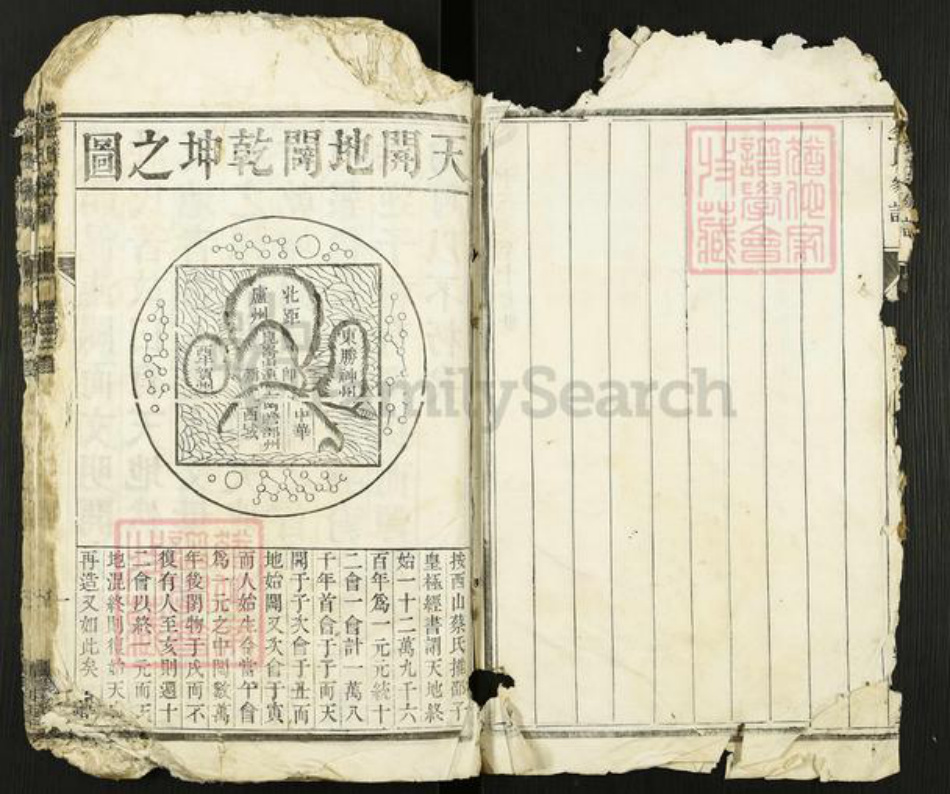 天開地闢乾坤之圖
北距
盧州
東勝神州
中華
西域
按西山蔡氏據邵子
皇極經書謂天地終
始一十二萬九千六
百年為一元元統十
二會一會計一萬八
千年首會于子而天
開于子次會于丑而
地始闢又次會于寅
而人始生今當午會
為一元之中間數萬
年後閉物于戌而不
復有人至亥則還十
二會以終一元而天
地混終則復始天
再造又如此矣
FamilySearch